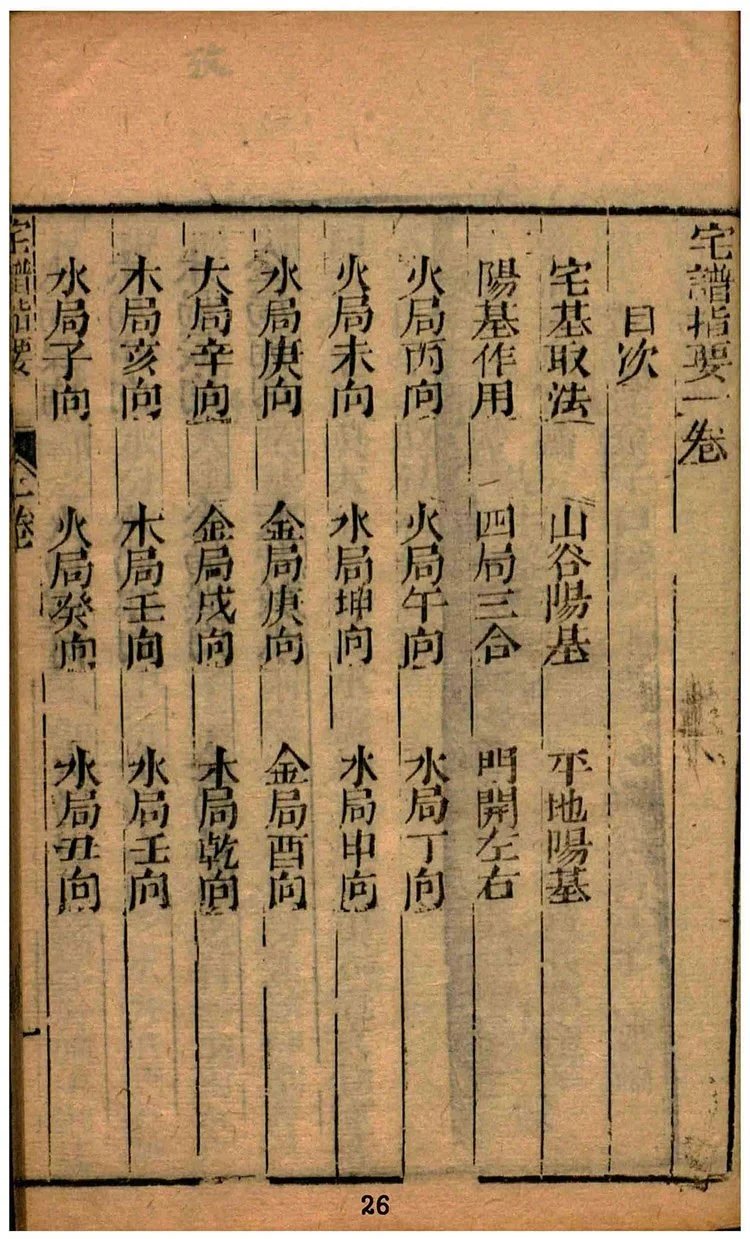 宅譜指要一卷
目次
宅基取法 山谷陽基 平地陽基
陽基作用 四局三合 門開左右
火局丙向 火局午向 水局丁向
火局未向 水局坤向 水局申向
水局庚向 金局庚向 金局酉向
大局辛向 金局戌向 木局乾向
木局亥向 木局壬向 水局壬向
水局子向 火局癸向 水局丑向
宅譜指要
卷
26